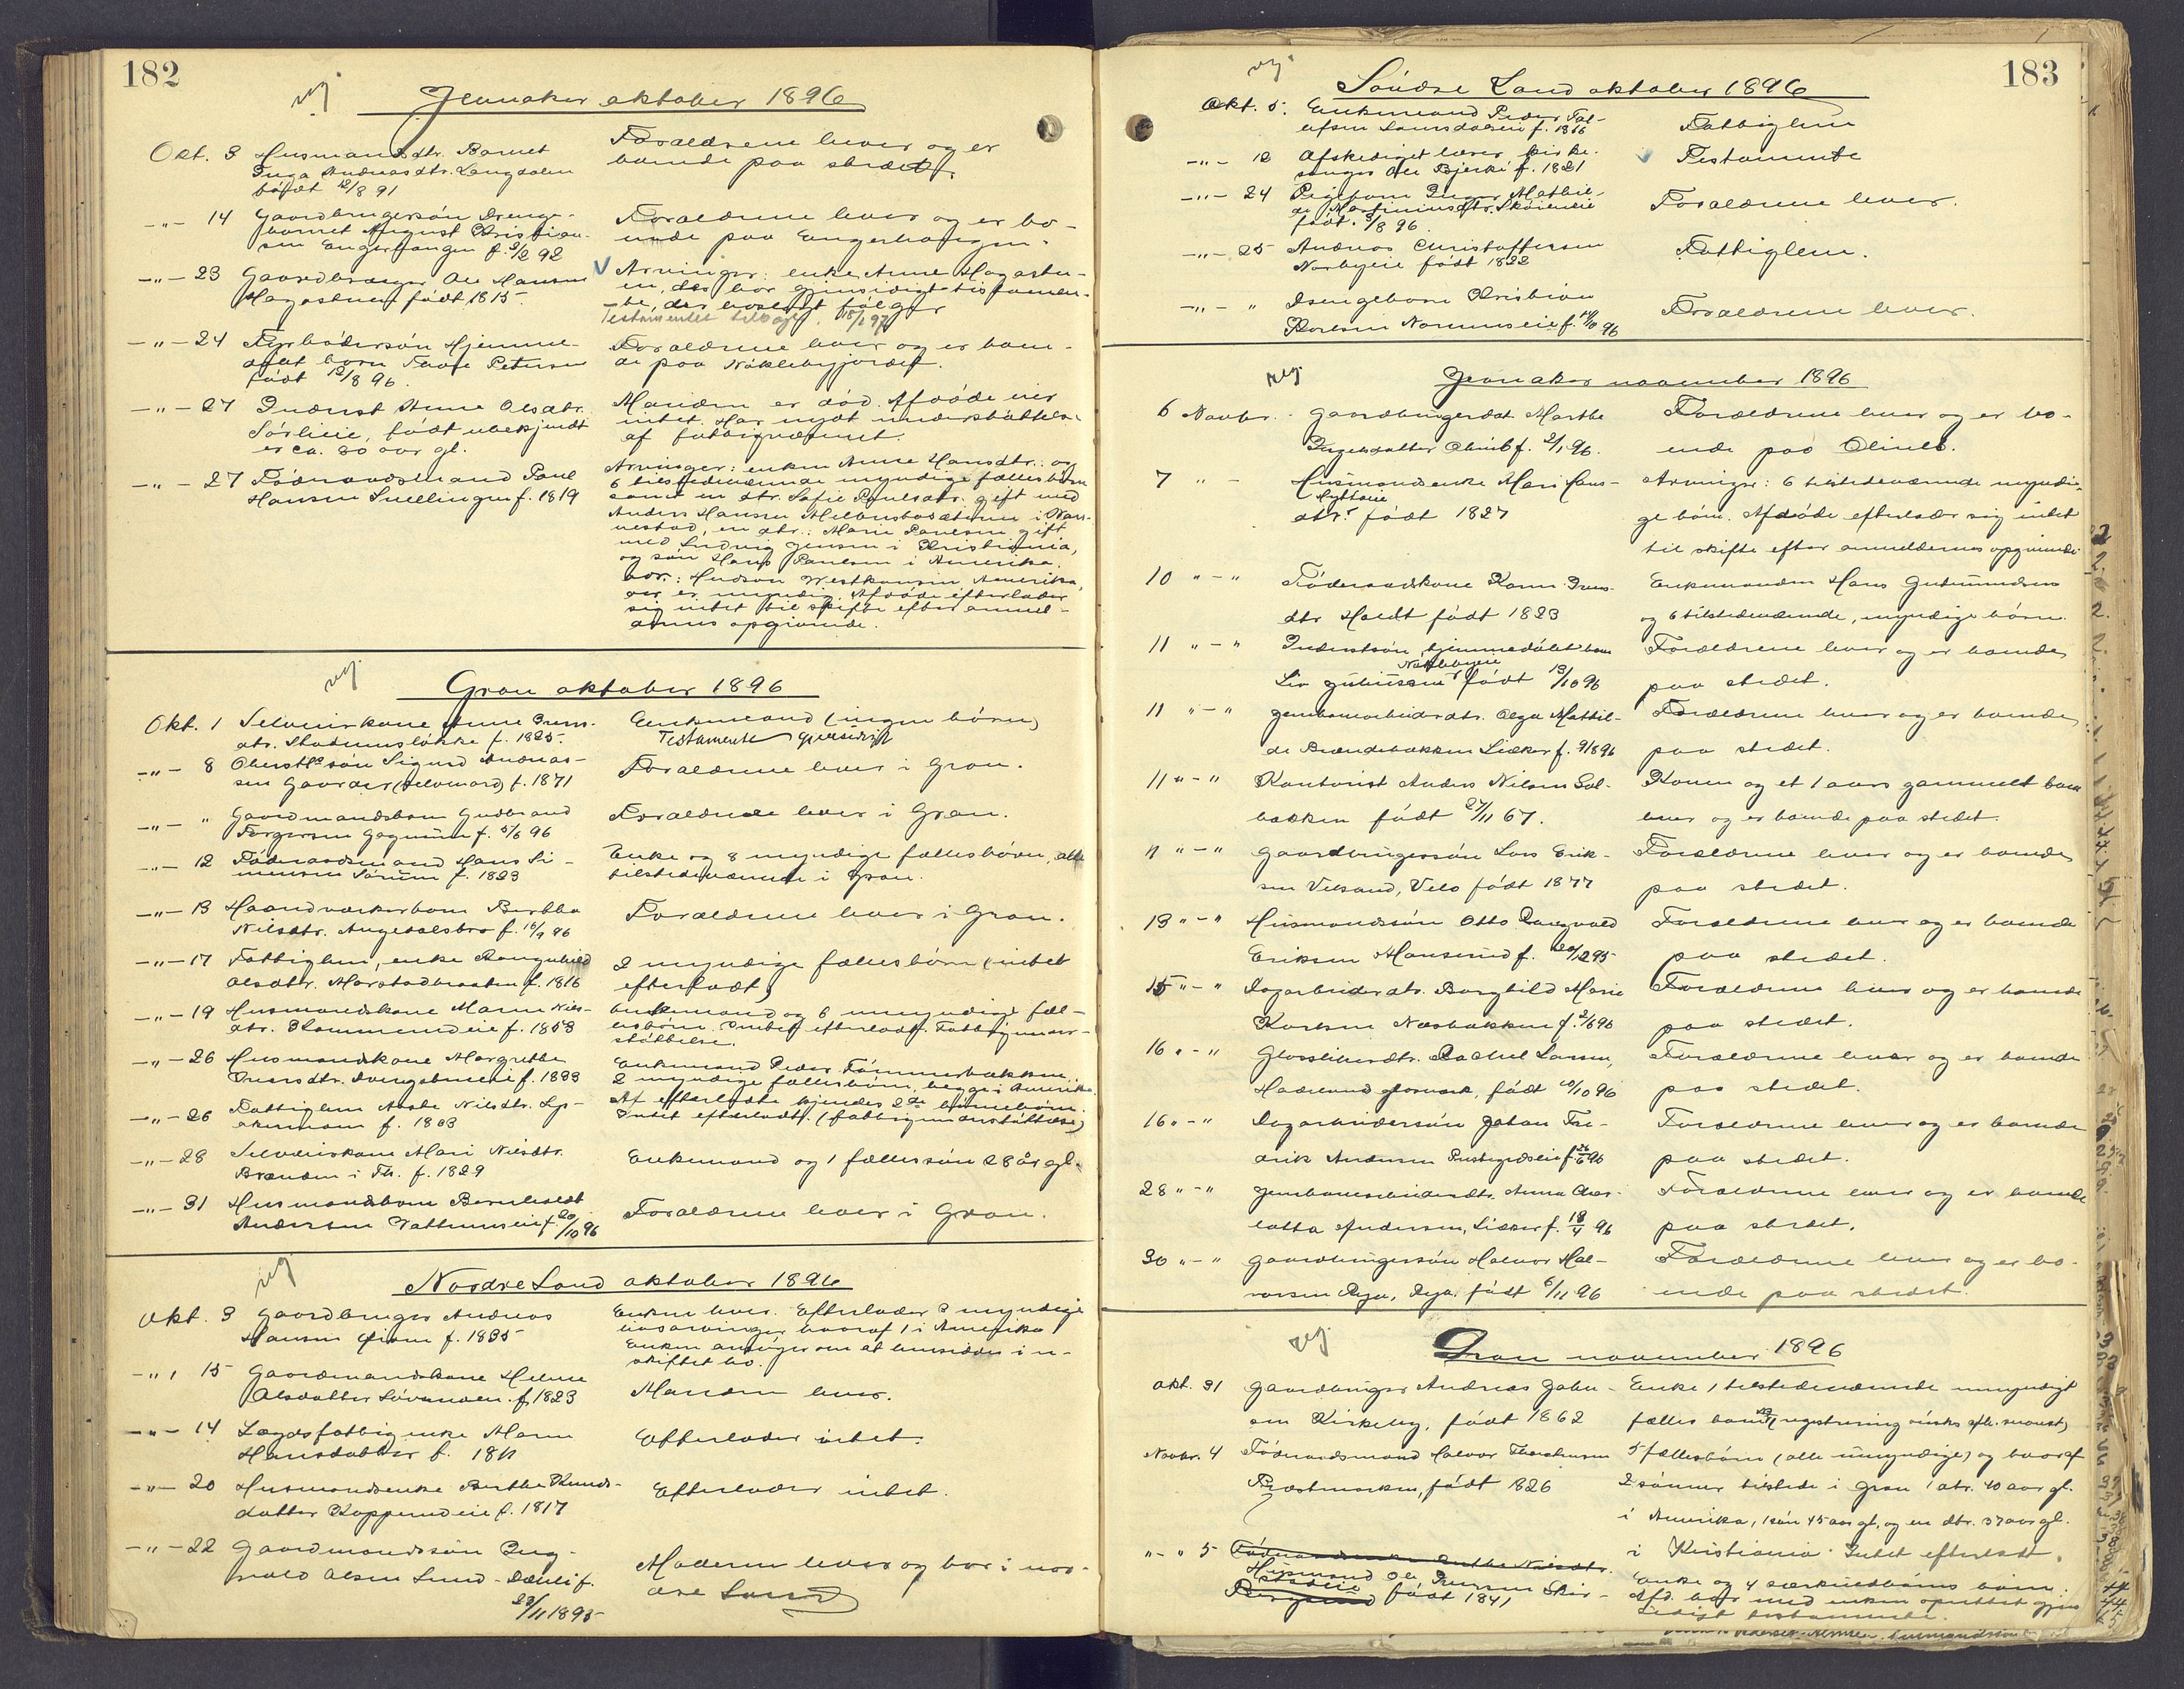 182
reg
Jevnaker oktober 1896
Okt. 3 Husmandsdtr. Barnet
Inga Andreasdtr. Langdalen
født 12/8 91
Forældrene lever og er
boende paa stedet.
-"- 14 Gaardbrugersøn Drenge-
barnet August Kristian-
sen Engerhaugen f. 2/2 92
Forældrene lever og er bo-
ende paa Engerhaugen.
-"- 23 Gaardbruger Ole Hansen
født 1815
Arvinger: enke Anne
en, der har gjensidigt testamen-
te, der hoslagt følger
Testamentet tilbage 18/1 97
-"- 24 Fyrbødersøn Hjemme-
døbt barn Petersen
født 12/8 96.
Forældrene lever og er boen-
de paa Nøklebyjordet.
-"- 27 Inderst Anne Olsdtr.
Sørlieie, født ubekjendt
er ca. 80 aar gl.
Manden er død. Afdøde eier
intet. Har nydt understøttelse
af fattigvæsenet.
-"- 27 Føderaadsmand Paul
Hansen Snellingen f. 1819
Arvinger: enken Anne Hansdtr. og
6 tilstedeværende myndige fællesbørn
samt en dtr. Sofie Paulsdtr. gift med
Anders Hansen i
en dtr.: Marie Paulsen gift
med Ludvig Jensen i Kristiania,
og søn Hans Paulsen i Amerika.
adr.: Hudson Amerika,
alle er myndig. Afdøde efterlader
sig intet til skifte efter anmel-
dernes opgivende.
reg
Gran oktober 1896
Okt. 1 Selveierkone Anne Ivers-
dtr. Stadumsløkke f. 1825.
Enkemand (ingen børn)
Testamente
-"- 8 søn Sigurd Andreas-
sen Gaarder (selvmord) f. 1871
Forældrene lever i Gran.
-"- " Gaardmandsbarn Gudbrand
Torgersen f. 5/6 96
Forældrene lever i Gran.
-"- 12 Føderaadsmand Hans Si-
mensen Sørum f. 1823
Enke og 8 myndige fællesbørn, alle
tilstedeværende i Gran.
-"- 13 Haandværkerbarn Bertha
Nilsdtr. Augedalsbro f. 16/9 96
Forældrene lever i Gran.
-"- 17 Fattiglem, enke Rangnhild
Olsdtr. f. 1816
2 myndige fællesbørn (intet
efterladt)
-"- 19 Husmandskone Maren Nils-
dtr. f. 1853
Enkemand og 6 umyndige fæl-
lesbørn. Intet efterladt. Fattigunder-
støttelse.
-"- 26 Husmandskone Margrethe
Iversdtr. f. 1833
Enkemand Peder Tømmerbakken.
2 myndige fællesbørn, begge i Amerika.
-"- 26 Fattiglem Aaste Nilsdtr.
f. 1803
Af efterladte kjendes 2de barnebørn.
Intet efterladt. (fattigunderstøttelse)
-"- 28 Selveierkone Mari Nilsdtr.
Brænden i Th. f. 1829
Enkemand og 1 fælles søn 28 år gl.
-"- 31 Husmandsbarn
Andersen f. 20/10 96
Forældrene lever i Gran.
reg
Nordre Land oktober 1896
Okt. 3 Gaardbruger Andreas
Hansen f. 1835
Enken lever. Efterlader 3 myndige
livsarvinger hvoraf 1 i Amerika
Enken ansøger om at hensidde i u-
skiftet bo.
-"- 15 Gaardmandskone Helene
Olsdatter f. 1823
Manden lever.
-"- 14 Lægdsfattig enke Maren
Hansdatter f. 1811
Efterlader intet.
-"- 20 Husmandsenke Berthe Knuds-
datter f. 1817
Efterlader intet.
-"- 22 Gaardmandssøn Ing-
vald Olsen Lund-Dælil f.
23/11 1895
Moderen lever og bor i nor-
dre Land
183
reg
Søndre Land oktober 1896
Okt. 5. Enkemand Peder Tol-
efsen f. 1816
Fattiglem
-"- 12 Afskediget lærer kirke-
sanger Ole Bjerke f. 1821
Testamente
-"- 24 Pigebarn Inger Mathil-
de Martiniusdtr. Skøieneie
født 3/8 96.
Forældrene lever.
-"- 25 Andreas Christoffersen
Norbyeie født 1822
Fattiglem.
-"- " Drengebarn Kristian
Karlsen f. 14/10 96
Forældrene lever.
reg
Jevnaker november 1896
6 Novbr. Gaardbrugerdat. Marthe
Ingersdatter Olimb f. 2/1 96.
Forældrene lever og er bo-
ende paa Olimb.
7 " - Husmandsenke Mari Hans-
Hytteeie
dtr. født 1827
Arvinger: 6 tilstedeværende myndi-
ge børn. Afdøde efterlader sig intet
til skifte efter anmeldernes opgivende
10 " - " Føderaadskone Karen Ivers-
dtr født 1823
Enkemanden Hans Gudmundsen
og 6 tilstedeværende, myndige børn.
11 " - " Inderstsøn hjemmedøbt barn
Nøklebyeie
født 13/10 96
Forældrene lever og er boende
paa stedet.
11 " - " Jernbanearbeiderdtr. Olga Mathil-
de Brændebakken Lieker f. 9/8 96
Forældrene lever og er boende
paa stedet.
11 " - " Kontorist Anders Nilsen Sol-
bakken født 27/11 67.
Konen og et 1 aars gammelt barn
lever og er boende paa stedet.
11 " - " Gaardbrugersøn Lars Erik-
sen Velsand, Velo født 1877
Forældrene lever og er boende
paa stedet.
13 " - " Husmandssøn Otto Rangvald
Eriksen f. 20/12 95
Forældrene lever og er boende
paa stedet.
15 " - " Dagarbeiderdtr. Borghild Marie
Karlsen Næsbakken f. 2/6 96
Forældrene lever og er boende
paa stedet.
16 " - " Glassliberdtr. Rachel Larsen,
Hadeland glasværk, født 10/10 96
Forældrene lever og er boende
paa stedet.
16 " - " Dagarbeidersøn Johan Fre-
drik Andersen Prestegrdseie f. 26/6 96
Forældrene lever og er boende
paa stedet.
28 " - " Jernbanearbeiderdtr. Anna Char-
lotta Andersen, Lieker f. 18/4 96
Forældrene lever og er boende
paa stedet.
30 " - " Gaardbrugersøn Halvor Hal-
vorsen født 6/11 96
Forældrene lever og er bo-
ende paa stedet.
reg
Gran november 1896
Okt. 31 Gaardbruger Andreas John-
sen Kirkeby, født 1862
Enke 1 tilstedeværende umyndigt
fælles barn (registrering ønskes)
Novbr. 4 Føderaadsmand Halvor
født 1826
5 fællesbørn (alle myndige) og hvoraf
2 sønner tilstede i Gran 1 dtr. 40 aar gl.
i Amerika, 1 søn 45 aar gl, og en dtr. 37 aar gl.
i Kristiania. Intet efterladt.
"-" 5
Husmand Ole Iversen
født 1841
Enke og 4 særkuldbørns børn.
Afd. har med enken oprettet gjen-
sidigt testamente.